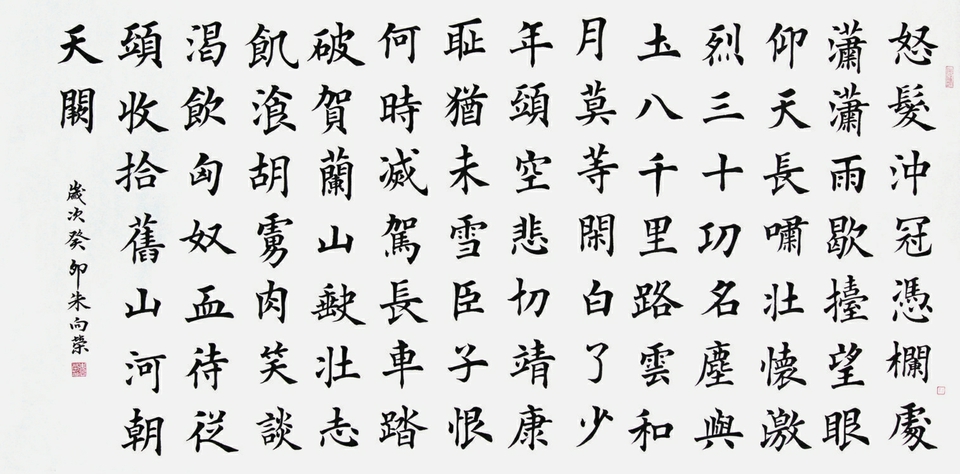 怒髮沖冠憑欄處
瀟瀟雨歇擡望眼
仰天長嘯壯懷激
烈三十功名塵與
土八千里路雲和
月莫等閑白了少
年頭空悲切靖康
耻猶未雪臣子恨
何時滅駕長車踏
破賀蘭山缺壯志
飢湌胡虜肉笑談
渴飲匈奴血待從
頭收拾舊山河朝
天闕
歲次癸卯朱向榮